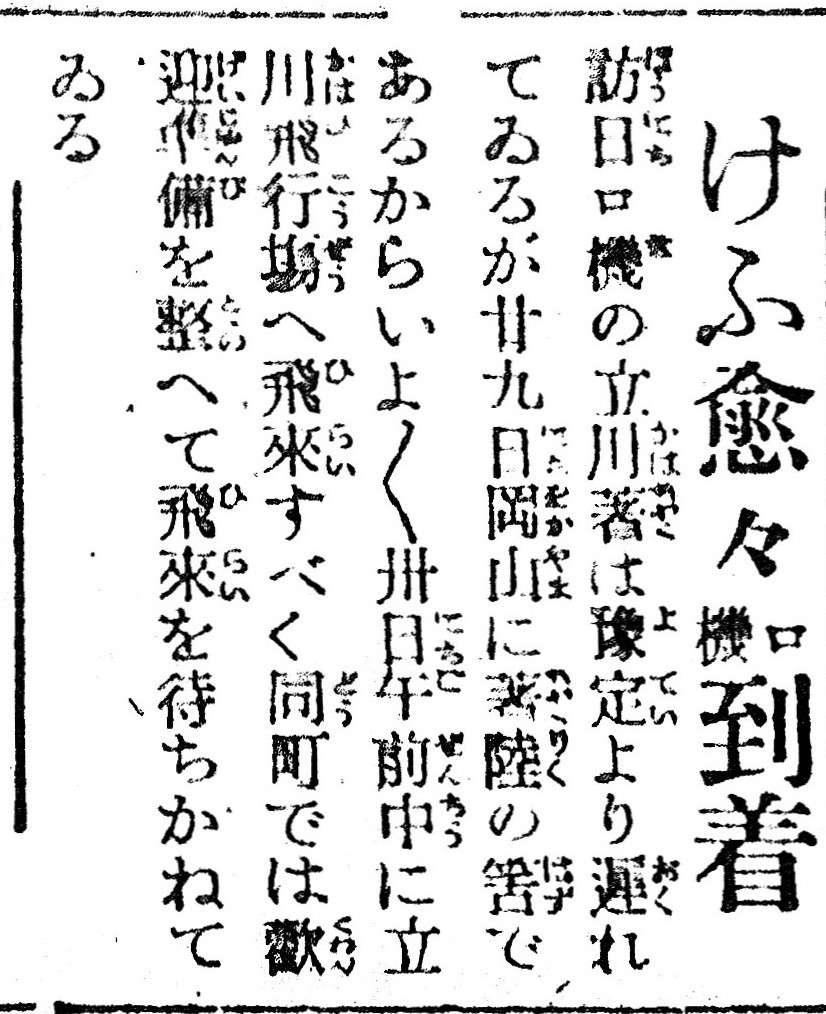 けふ愈々ロ機到着
訪日ロ機の立川著は豫定より遲れ
てゐるが廿九日岡山に著陸の筈で
あるからいよ〱卅日午前中に立
川飛行場へ飛來すべく同町では歡
迎準備を整へて飛來を待ちかねて
ゐる